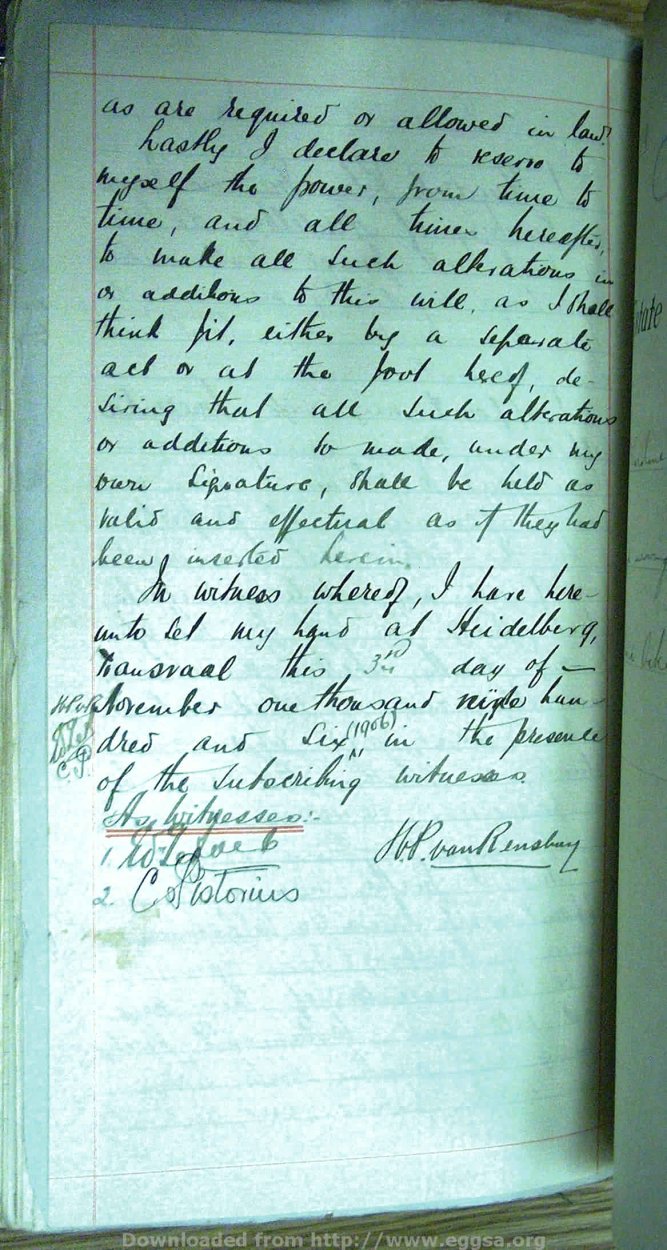 as are required or allowed in law.
Lastly I declare to reserve to
myself the power, from time to
time, and all times hereafter,
to make all such alterations in
or additions to this will, as I shall
think fit, either by a separate
act or at the foot hereof, de-
siring that all such alterations
or additions so made, under my
own signature, shall be held as
valid and effectual as if they had
been inserted herein.
In witness whereof, I have here-
unto set my hand at Heidelberg,
Transvaal this 3rd day of –
November one thousand nine hun-
dred and six (1906) in the presence
of the subscribing witnesses.
As witnesses:-
1.
2. C Pistorius
H.P. van Rensburg
C.P.
Downloaded from http://www.eggsa.org